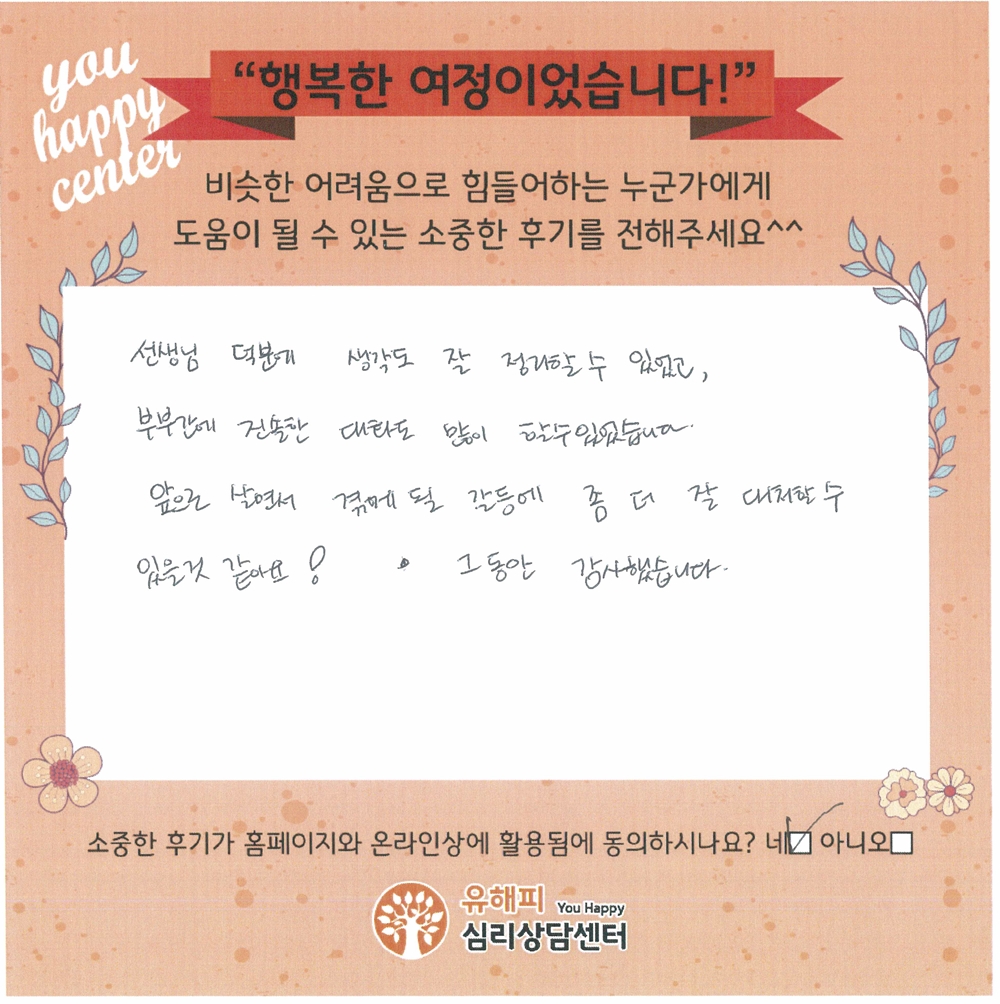 you
happy
center
“행복한 여정이었습니다!”
비슷한 어려움으로 힘들어하는 누군가에게
도움이 될 수 있는 소중한 후기를 전해주세요^^
선생님 덕분에 생각도 잘 정리할 수 있었고,
부부간에 진솔한 대화도 많이 할수있었습니다.
앞으로 살면서 겪게 될 갈등에 좀 더 잘 대처할 수
있을것 같아요! 그동안 감사했습니다.
소중한 후기가 홈페이지와 온라인상에 활용됨에 동의하시나요? 네 아니오
유해피 You Happy
심리상담센터